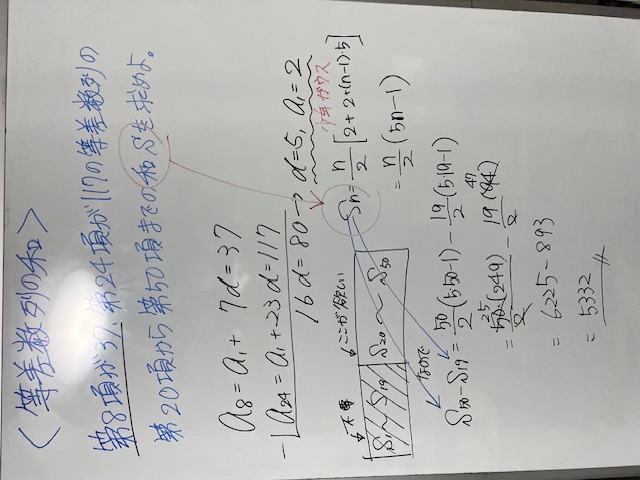 <等差数列の和>
第8項が37, 第24項が117の等差数列の
第20項から第50項までの和Sを求めよ。
a₈ = a₁ + 7d = 37
-) a₂₄ = a₁ + 23d = 117
16d = 80 → d=5, a₁=2
少年ガウス
Sn = n/2 [2+2+(n-1)・5]
= n/2 (5n-1)
不要 ここが欲しい
S₁~S₁₉ S₂₀ ~ S₅₀
なので
S₅₀-S₁₉ = 50/2 (5・50-1) - 19/2 (5・19-1)
= 50・(249)/2 - 19(94)/2
25 47
= 6225-893
= 5332 //